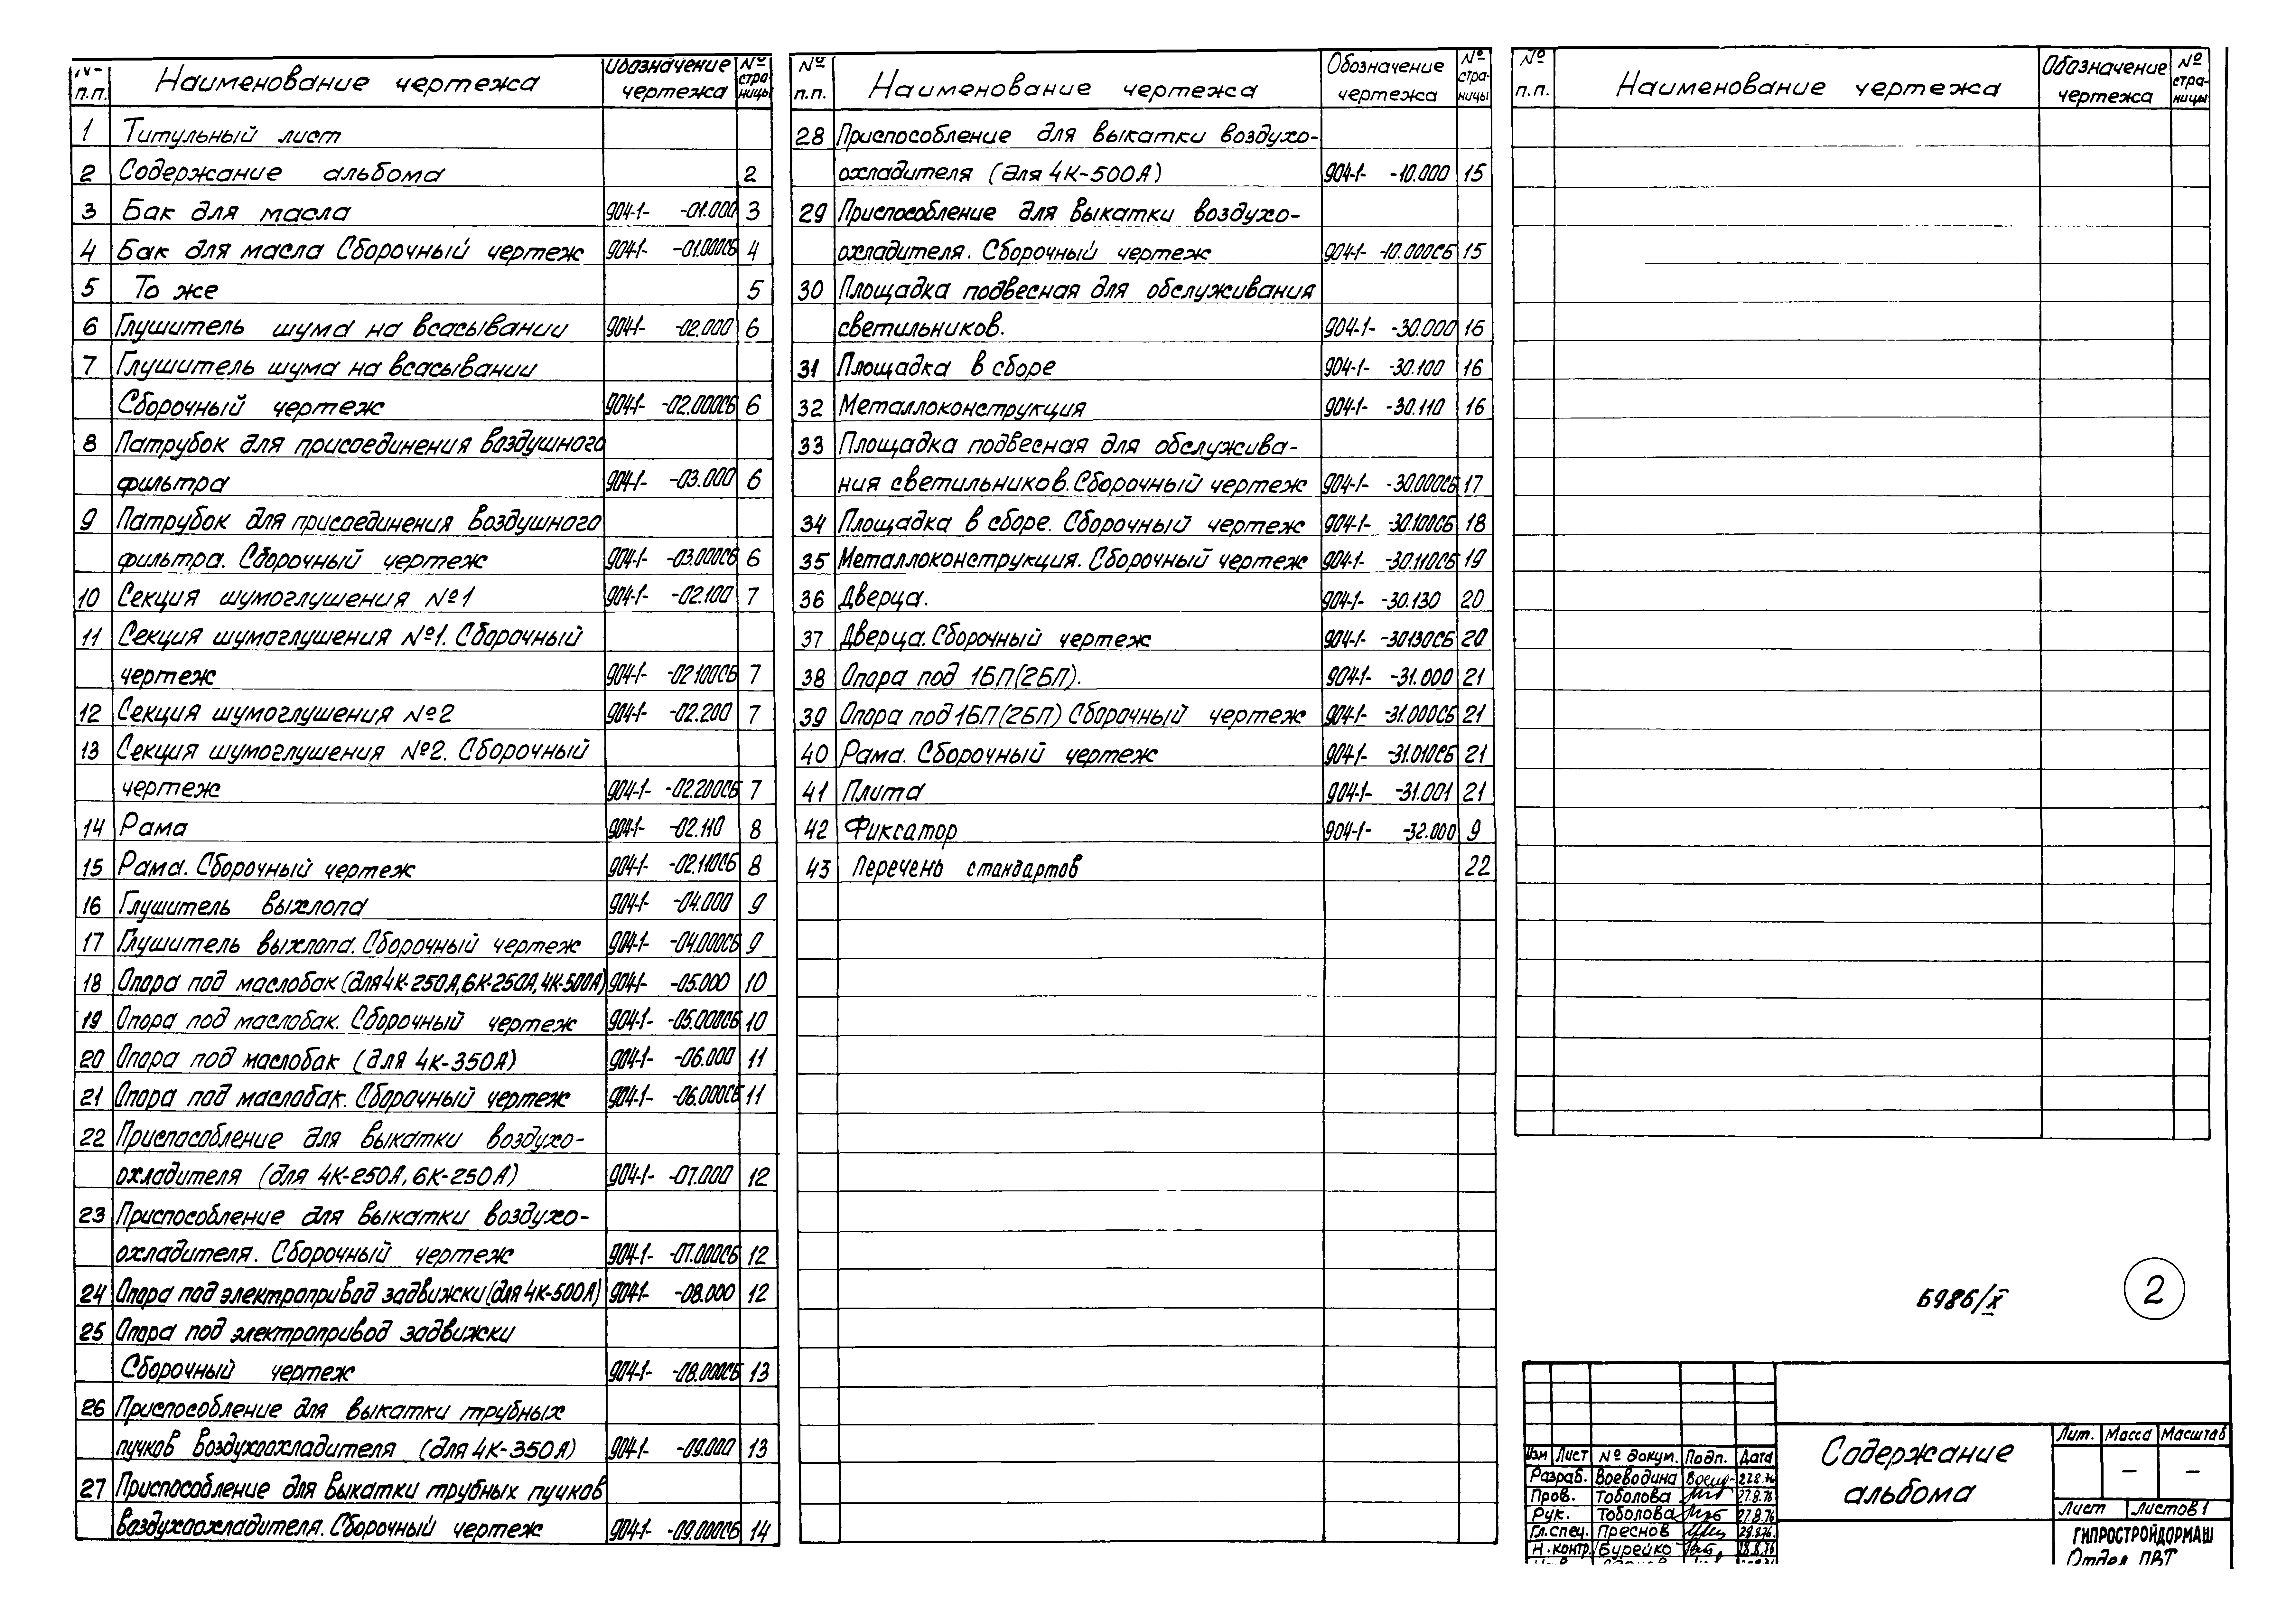 № п.п. Наименование чертежа Обозначение чертежа № страницы
1 Титульный лист
2 Содержание альбома 2
3 Бак для масла 904-1- -01.000 3
4 Бак для масла Сборочный чертеж 904-1- -01.000СБ 4
5 То же 5
6 Глушитель шума на всасывании 904-1- -02.000 6
7 Глушитель шума на всасывании
Сборочный чертеж 904-1- -02.000СБ 6
8 Патрубок для присоединения воздушного
фильтра 904-1- -03.000 6
9 Патрубок для присоединения воздушного
фильтра. Сборочный чертеж 904-1- -03.000СБ 6
10 Секция шумоглушения №1 904-1- -02.100 7
11 Секция шумоглушения №1. Сборочный
чертеж 904-1- -02.100СБ 7
12 Секция шумоглушения №2 904-1- -02.200 7
13 Секция шумоглушения №2. Сборочный
чертеж 904-1- -02.200СБ 7
14 Рама 904-1- -02.110 8
15 Рама. Сборочный чертеж 904-1- -02.110СБ 8
16 Глушитель выхлопа 904-1- -04.000 9
17 Глушитель выхлопа. Сборочный чертеж 904-1- -04.000СБ 9
18 Опора под маслобак (для 4К-250А, 6К-250А, 4К-500А) 904-1- -05.000 10
19 Опора под маслобак. Сборочный чертеж 904-1- -05.000СБ 10
20 Опора под маслобак (для 4К-350А) 904-1- -06.000 11
21 Опора под маслобак. Сборочный чертеж 904-1- -06.000СБ 11
22 Приспособление для выкатки воздухо-
охладителя (для 4К-250А, 6К-250А) 904-1- -07.000 12
23 Приспособление для выкатки воздухо-
охладителя. Сборочный чертеж 904-1- -07.000СБ 12
24 Опора под электропривод задвижки (для 4К-500А) 904-1- -08.000 12
25 Опора под электропривод задвижки
Сборочный чертеж 904-1- -08.000СБ 13
26 Приспособление для выкатки трубных
пучков воздухоохладителя (для 4К-350А) 904-1- -09.000 13
27 Приспособление для выкатки трубных пучков
воздухоохладителя. Сборочный чертеж 904-1- -09.000СБ 14
№ п.п. Наименование чертежа Обозначение чертежа № страницы
28 Приспособление для выкатки воздухо-
охладителя (для 4К-500А) 904-1- -10.000 15
29 Приспособление для выкатки воздухо-
охладителя. Сборочный чертеж 904-1- -10.000СБ 15
30 Площадка подвесная для обслуживания
светильников. 904-1- -30.000 16
31 Площадка в сборе 904-1- -30.100 16
32 Металлоконструкция 904-1- -30.110 16
33 Площадка подвесная для обслужива-
ния светильников. Сборочный чертеж 904-1- -30.000СБ 17
34 Площадка в сборе. Сборочный чертеж 904-1- -30.100СБ 18
35 Металлоконструкция. Сборочный чертеж 904-1- -30.110СБ 19
36 Дверца. 904-1- -30.130 20
37 Дверца. Сборочный чертеж 904-1- -30130СБ 20
38 Опора под 1БП(2БП). 904-1- -31.000 21
39 Опора под 1БП(2БП) Сборочный чертеж 904-1- -31.000СБ 21
40 Рама. Сборочный чертеж 904-1- -31.010СБ 21
41 Плита 904-1- -31.001 21
42 Фиксатор 904-1- -32.000 9
43 Перечень стандартов 22
№ п.п. Наименование чертежа Обозначение чертежа № страницы
Б986/X
2
Изм Лист № докум. Подп. Дата
Разраб. Воеводина 27.8.76
Пров. Тоболова 27.8.76
Рук. Тоболова 27.8.76
Гл.спец. Преснов
Н.контр. Бурейко
Содержание
альбома
Лит. Масса Масштаб
– –
Лист Листов 1
ГИПРОСТРОЙДОРМАШ
Отдел ПВТ